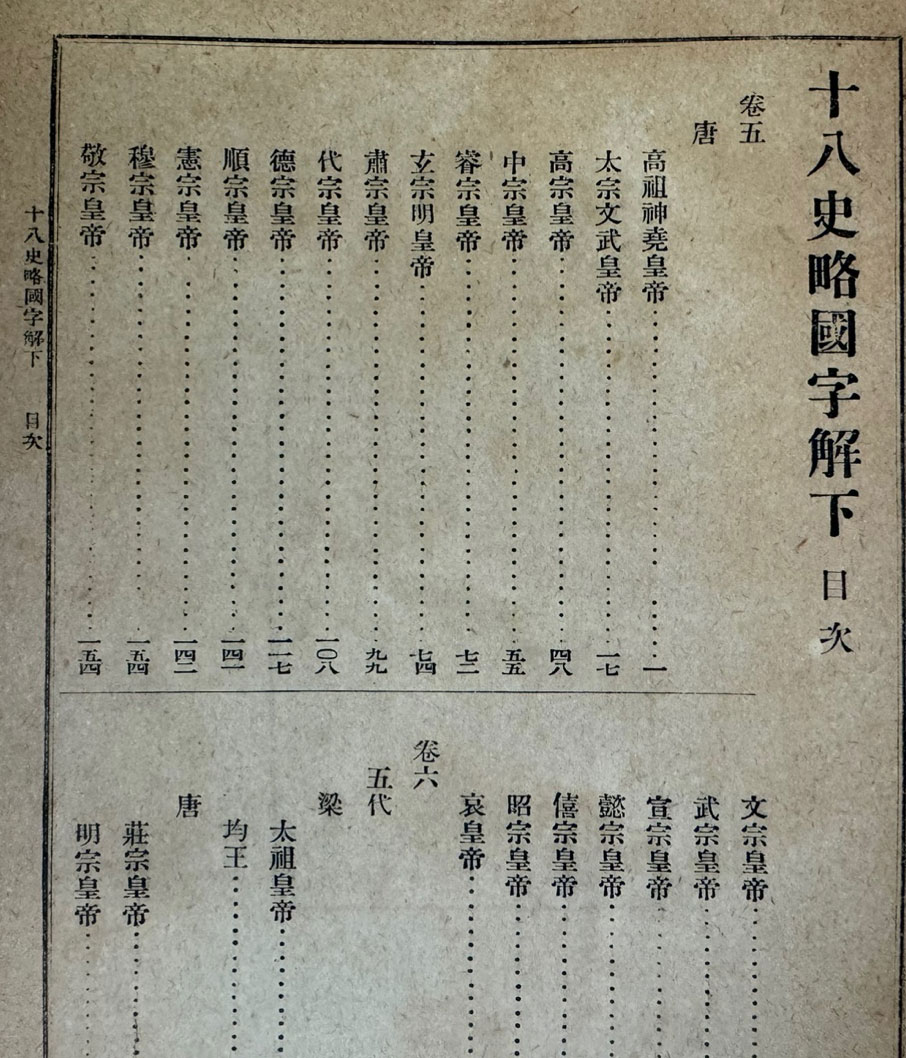 十八史略國字解下 目次
卷五
唐
高祖神堯皇帝……一
太宗文武皇帝……一七
高宗皇帝……四八
中宗皇帝……五五
睿宗皇帝……七二
玄宗明皇帝……七四
肅宗皇帝……九九
代宗皇帝……一〇八
德宗皇帝……一一七
順宗皇帝……一四一
憲宗皇帝……一四二
穆宗皇帝……一五四
敬宗皇帝……一五四
文宗皇帝……
武宗皇帝……
宣宗皇帝……
懿宗皇帝……
僖宗皇帝……
昭宗皇帝……
哀皇帝……
卷六
五代
梁
太祖皇帝……
均王……
唐
莊宗皇帝……
明宗皇帝……
十八史略國字解下 目次